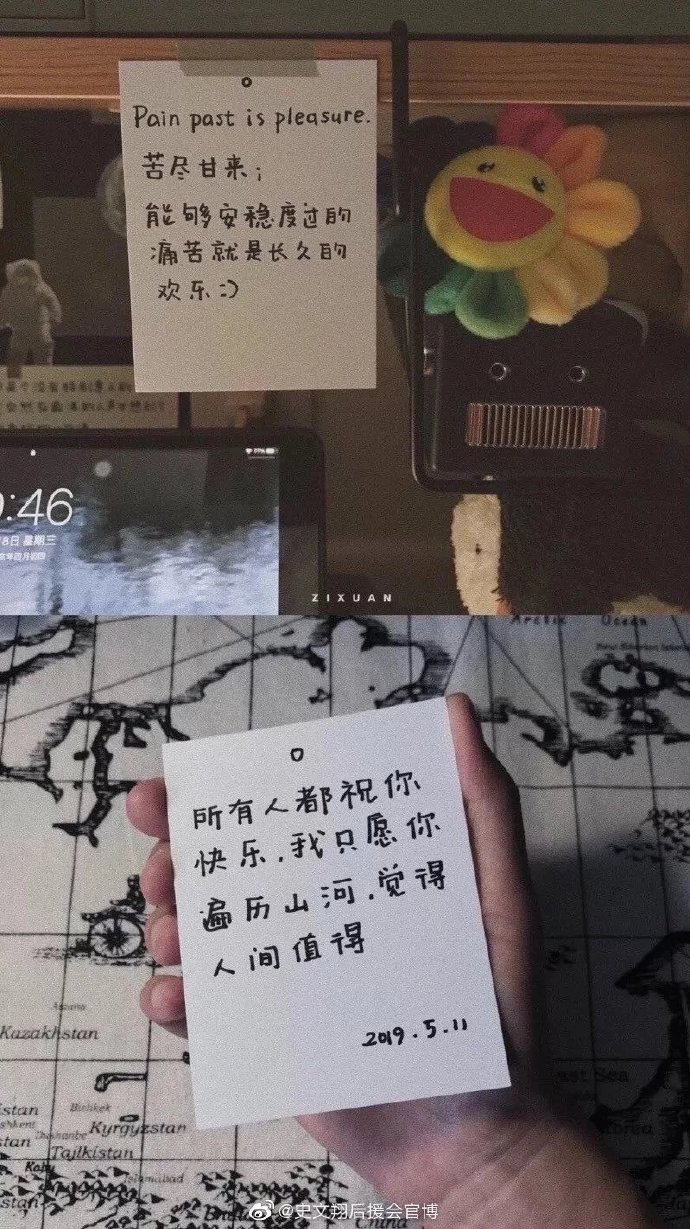 Pain past is pleasure.
苦尽甘来；
能够安稳度过的
痛苦就是长久的
欢乐:)
:46
8日 星期三
ZIXUAN
Arctic Ocean
所有人都祝你
快乐，我只愿你
遍历山河，觉得
人间值得
2019.5.11
Kazakhstan
Bishkek
Kyrgyzstan
Dushanbe
Tajikistan
Kabul
Islamabad
China
@史文翔后援会官博